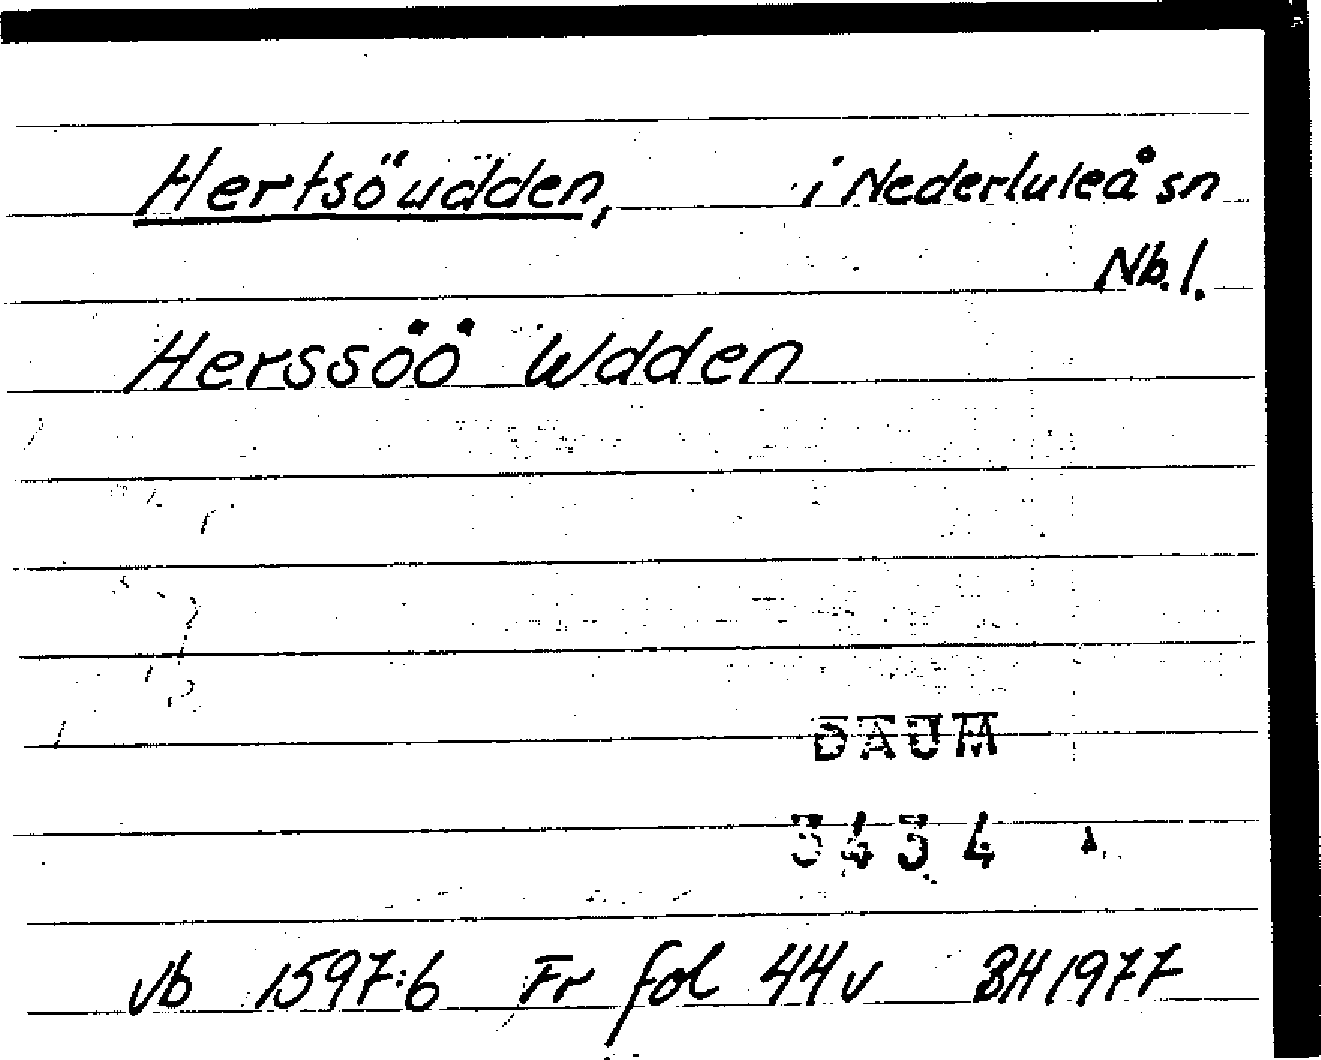 Hertsöudden, i Nederluleå sn
Nb. l.
Herssöö Wdden
DAUM
3434
Jb 1597:6 Fr fol 44 v BH 1977